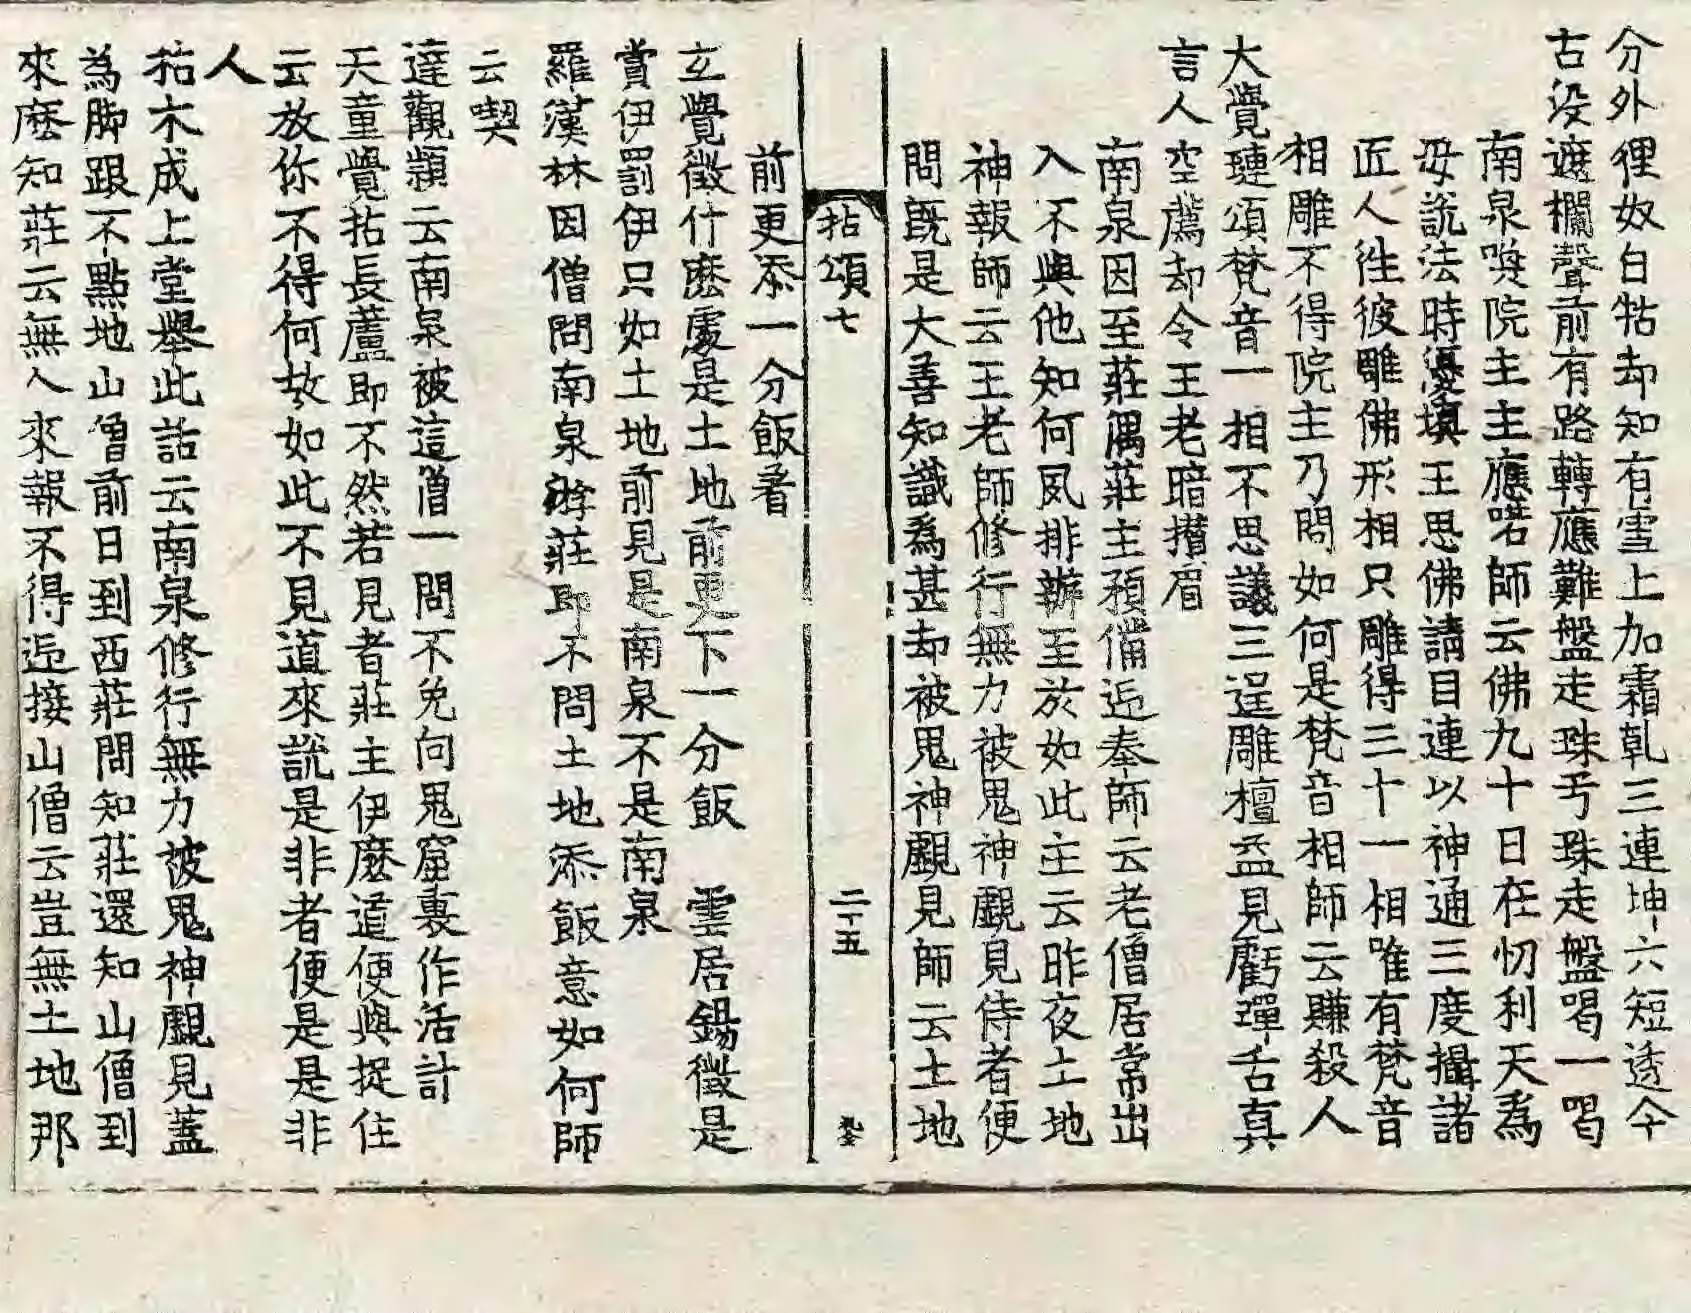 分外狸奴白牯却知有雪上加霜乹三連坤六短透今
古没遮欄聲前有路轉應難盤走珠兮珠走盤喝一喝
南泉喚院主主應喏師云佛九十日在忉利天為
母說法時優填王思佛請目連以神通三度攝諸
匠人徃彼雕佛形相只雕得三十一相唯有梵音
相雕不得院主乃問如何是梵音相師云賺殺人
大覺璉頌梵音一相不思議三逞雕檀益見虧殫舌真
言人空薦却令王老暗攢眉
南泉因至莊偶莊主預俻迎奉師云老僧居常出
入不與他知何夙排辦至於如此主云昨夜土地
神報師云王老師修行無力被鬼神覷見侍者便
問既是大善知識為甚却被鬼神覷見師云土地
拈頌七
二十五
前更添一分飯着
玄覺徵什麽處是土地前更下一分飯　雲居錫徵是
賞伊罰伊只如土地前見是南泉不是南泉
羅漢林因僧問南泉遊莊即不問土地添飯意如何師
云喫
達觀頴云南泉被這僧一問不免向鬼窟裏作活計
天童覺拈長蘆即不然若見者莊主伊麽道便與捉住
云放你不得何故如此不見道來說是非者便是是非
人
拈木成上堂舉此話云南泉修行無力被鬼神覷見蓋
為脚跟不點地山僧前日到西莊問知莊還知山僧到
來麽知莊云無人來報不得迎接山僧云豈無土地那